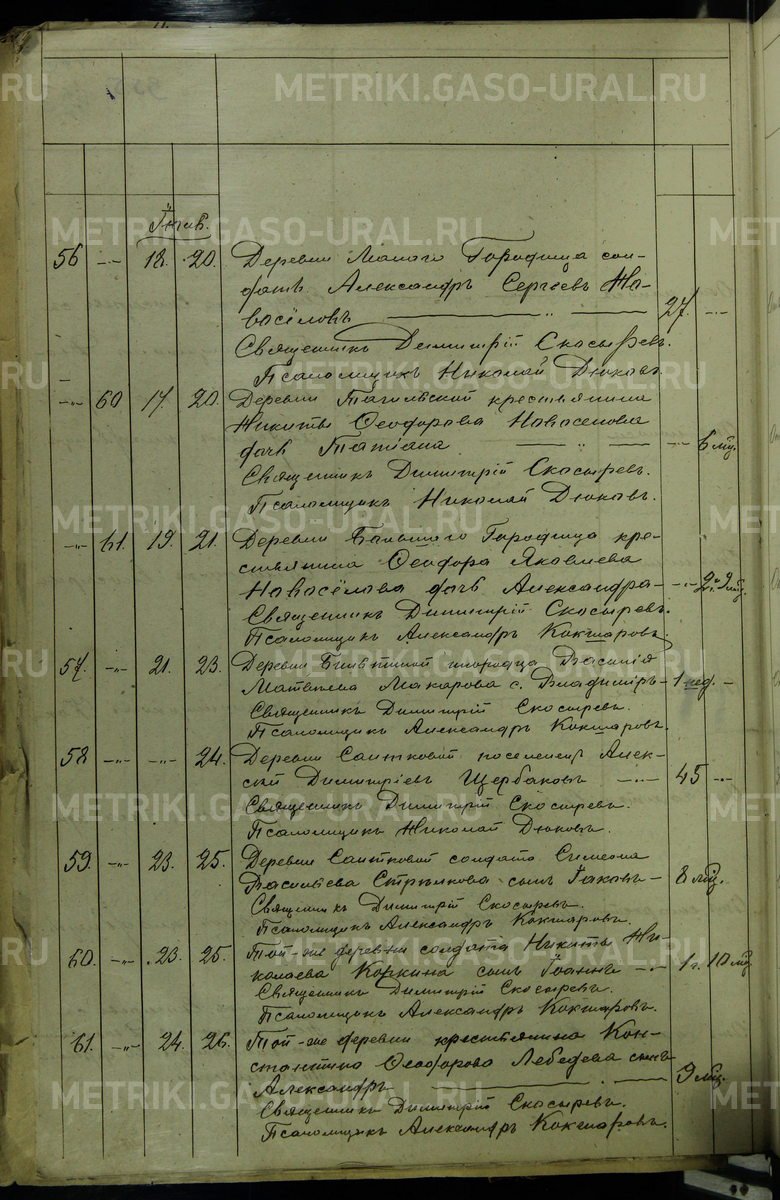 METRIKI.GASO-URAL.RU
Іюль.
56 —„— 18. 20. Деревни Малаго Городища сол-
датъ Александръ Сергеевъ Но-
восёловъ — „ — 27. —„—
Священникъ Димитрій Скосыревъ.
Псаломщикъ Николай Дюковъ.
—„— 60 17. 20. Деревни Тагильской крестьянина
Никиты Ѳеодорова Новоселова
дочь Татіана — „ — —„— 6 мц.
Священникъ Димитрій Скосыревъ.
Псаломщикъ Николай Дюковъ.
—„— 61. 19. 21. Деревни Большаго Городища кре-
стьянина Ѳеодора Яковлева
Новосёлова дочь Александра — —„— 2 г. 9 мц.
Священникъ Димитрій Скосыревъ.
Псаломщикъ Александръ Кокшаровъ.
57. —„— 21. 23. Деревни инородца Василія
Матвеева Макарова с. Владиміръ — 1 нед. —
Священникъ Димитрій Скосыревъ.
Псаломщикъ Александръ Кокшаровъ.
58 —„— —„— 24. Деревни Саитковой поселенецъ Алек-
сей Димитріевъ Щербаковъ —„— 45 —„—
Священникъ Димитрій Скосыревъ.
Псаломщикъ Николай Дюковъ.
59. —„— 23. 25. Деревни Саитковой солдата Симеона
Васильева Стрелкова сынъ Іаковъ — 8 мц.
Священникъ Димитрій Скосыревъ.
Псаломщикъ Александръ Кокшаровъ.
60. —„— 23. 25. Той-же деревни солдата Никиты Ни-
колаева Коркина сынъ Іоаннъ —„— 1 г. 10 мц.
Священникъ Димитрій Скосыревъ.
Псаломщикъ Александръ Кокшаровъ.
61. —„— 24. 26. Той-же деревни крестьянина Кон-
стантина Ѳеодорова Лебедева сынъ
Александръ — . — 9 мц.
Священникъ Димитрій Скосыревъ.
Псаломщикъ Александръ Кокшаровъ.